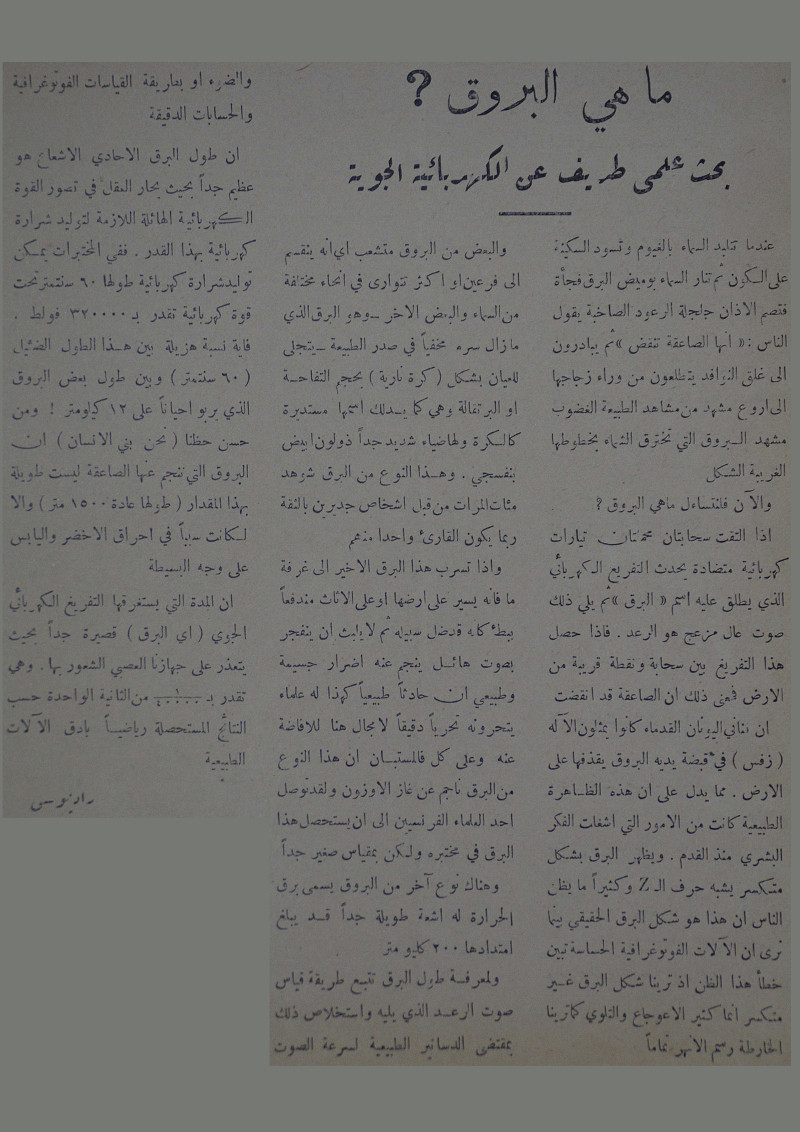 ما هي البروق ؟
بحث علمي طريف عن الكهربائية الجوية
عندما تتلبد السماء بالغيوم وتسود السكينة
على السكون ثم تنار السماء بوميض البرق فجأة
فتصم الاذان جلجلة الرعود الصاخبة يقول
الناس : « انها الصاعقة تنقض » ثم يبادرون
الى غلق النوافد يتطلعون من وراء زجاجها
الى اروع مشهد من مشاهد الطبيعة الغضوب
مشهد البروق التي تخترق السماء بخطوطها
الغريبة الشكل
والآن فلنتساءل ماهي البروق ؟
اذا التقت سحابتان محملتان تيارات
كهربائية متضادة يحدث التفريغ الكهربائي
الذي يطلق عليه اسم « البرق » ثم يلي ذلك
صوت عال مزعج هو الرعد . فاذا حصل
هذا التفريغ بين سحابة ونقطة قريبة من
الارض فمعنى ذلك ان الصاعقة قد انقضت
ان اليونان القدماء كانوا يمثلون الآله
( زفس ) في قبضة يديه البروق يقذفها على
الارض . مما يدل على ان هذه الظاهرة
الطبيعية كانت من الامور التي اشغلت الفكر
البشري منذ القدم . ويظهر البرق بشكل
متكسر يشبه حرف الـ Z وكثيراً ما يظن
الناس ان هذا هو شكل البرق الحقيقي بينما
نرى ان الآلات الفوتوغرافية الحساسة تبين
خطأ هذا الظن اذ ترينا شكل البرق غير
متكسر انما كثير الاعوجاج والتلوي كما ترينا
الخارطة رسم الانهر تماماً
والبعض من البروق متشعب اي انه ينقسم
الى فرعين او اكثر تتوارى في انحاء مختلفة
من السماء والبعض الاخر ــ وهو البرق الذي
ما زال سره مخفياً في صدر الطبيعة ــ يتجلى
للعيان بشكل ( كرة نارية ) بحجم التفاحة
او البرتقالة وهي كما يدلك اسمها مستديرة
كالكرة ولها ضياء شديد جداً ذو لون ابيض
بنفسجي . وهذا النوع من البرق شوهد
مئات المرات من قبل اشخاص جديرين بالثقة
ربما يكون القارئ واحدا منهم
واذا تسرب هذا البرق الاخير الى غرفة
ما فانه يسير على ارضها او على الاثاث مندفعاً
ببطء كانه قد ضل سبيله ثم لا يلبث ان ينفجر
بصوت هائل ينجم عنه اضرار جسيمة
وطبيعي ان حادثاً طبيعياً كهذا له علماء
يتحرونه تحرياً دقيقاً لا مجال هنا للافاضة
عنه وعلى كل فالمستبان ان هذا النوع
من البرق ناجم عن غاز الاوزون ولقد توصل
احد العلماء الفرنسيين الى ان يستحصل هذا
البرق في مختبره ولكن بمقياس صغير جداً
وهناك نوع آخر من البروق يسمى برق
الحرارة له اشعة طويلة جداً قد يبلغ
امتدادها ٢٠٠ كليو متر
ولمعرفة طول البرق نتبع طريقة قياس
صوت الرعد الذي يليه واستخلاص ذلك
بمقتضى الدساتير الطبيعية لسرعة الصوت
والضوء او بطريقة القياسات الفوتوغرافية
والحسابات الدقيقة
ان طول البرق الاحادي الاشعاع هو
عظيم جداً بحيث يحار العقل في تصور القوة
الكهربائية الهائلة اللازمة لتوليد شرارة
كهربائية بهذا القدر . ففي المختبرات يمكن
توليد شرارة كهربائية طولها ٦٠ سنتمتر تحت
قوة كهربائية تقدر بـ ٣٢٠٠٠٠ فولط .
فاية نسبة هزيلة بين هذا الطول الضئيل
( ٦٠ سنتمتر ) وبين طول بعض البروق
الذي يربو احياناً على ١٢ كيلومتر ! ومن
حسن حظنا ( نحن بني الانسان ) ان
البروق التي تنجم عنها الصاعقة ليست طويلة
بهذا المقدار ( طولها عادة ١٥٠٠ متر ) والا
لكانت سبباً في احراق الاخضر واليابس
على وجه البسيطة
ان المدة التي يستغرقها التفريغ الكهربائي
الجوي ( اي البرق ) قصيرة جداً بحيث
يتعذر على جهازنا العصبي الشعور بها . وهي
تقدر بـ من الثانية الواحدة حسب
النتائج المستحصلة رياضياً بادق الآلات
الطبيعية